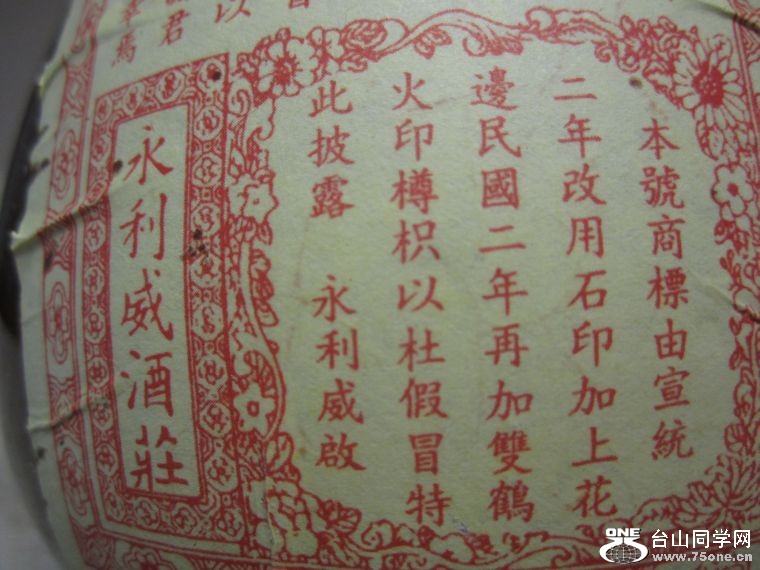 本號商標由宣統
二年改用石印加上花
邊民國二年再加雙鶴
火印樽枳以杜假冒特
此披露 永利威啟
永利威酒莊
ONE
台山同学网
www.75one.cn